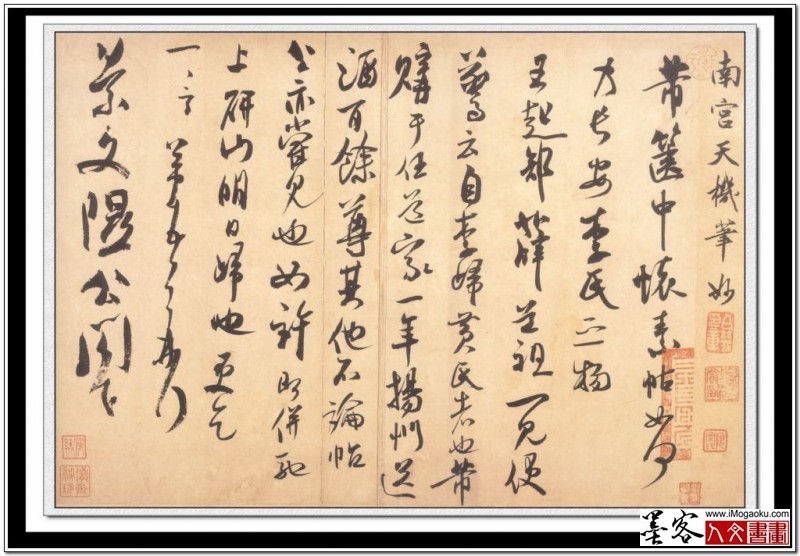 南宮天機筆妙
芾篋中懷素帖如何
乃長安李氏之物
王起部薛道祖一見便
驚云自李歸黃氏者也芾
購于任道家一年揚州送
酒百餘尊其他不論帖
公亦嘗見也如許即併馳
上研山明日歸也更乞
一一言芾頓首再拜
景文隰公閣下
墨客
www.iMogaoku.com
人文書畫